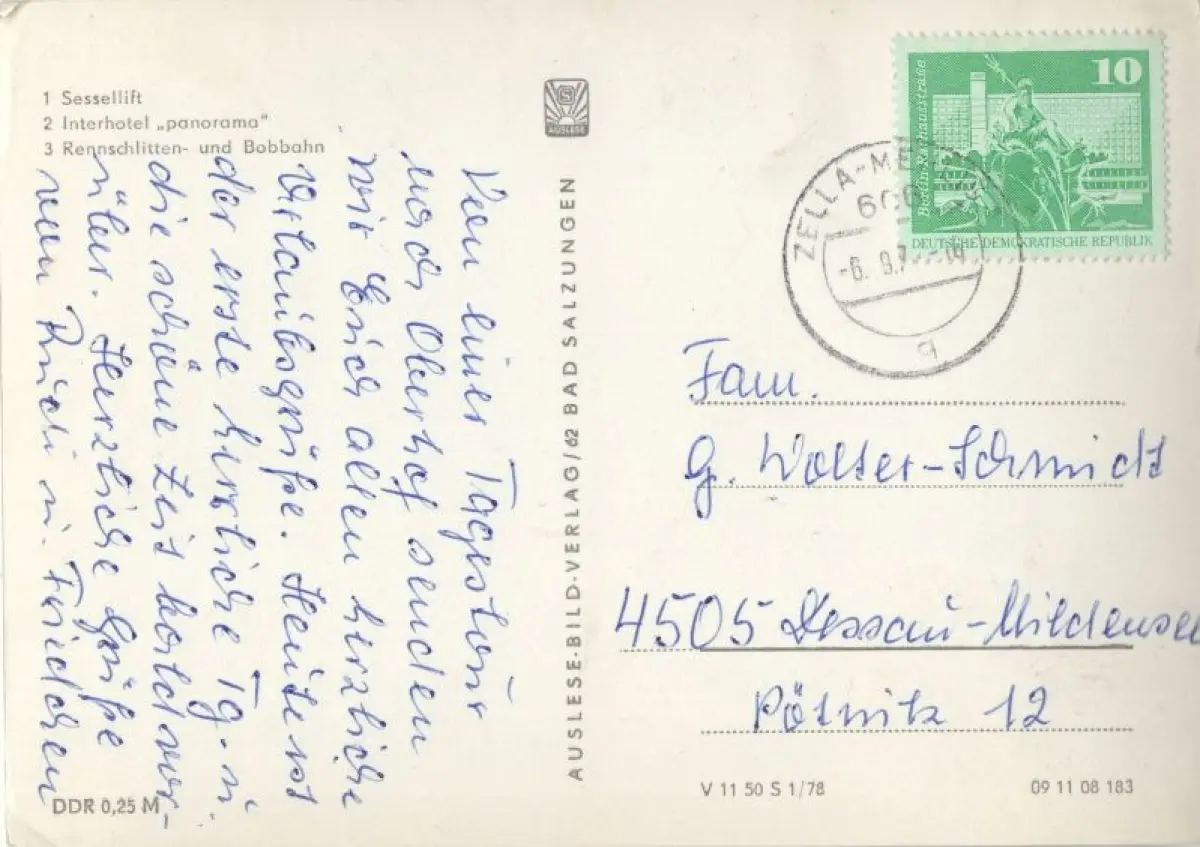 1 Sessellift
2 Interhotel „panorama"
3 Rennschlitten- und Bobbahn
Von einer Tagestour
nach Oberhof senden
wir Euch allen herzliche
Urlaubsgrüße. Heute ist
der erste herrliche Tg. u.
die schöne Zeit bald vor-
rüber. Herzliche Grüße
von u. Friedchen
DDR 0,25 M
S
AUSLESE
AUSLESE-BILD-VERLAG/62 BAD SALZUNGEN
10
Berlin-Rathausstraße
DEUTSCHE DEMOKRATISCHE REPUBLIK
ZELLA-ME
Fam.
G. Wolter-Schmidt
4505 Dessau-Mildensee
Pötnitz 12
V 11 50 S 1/78
09 11 08 183